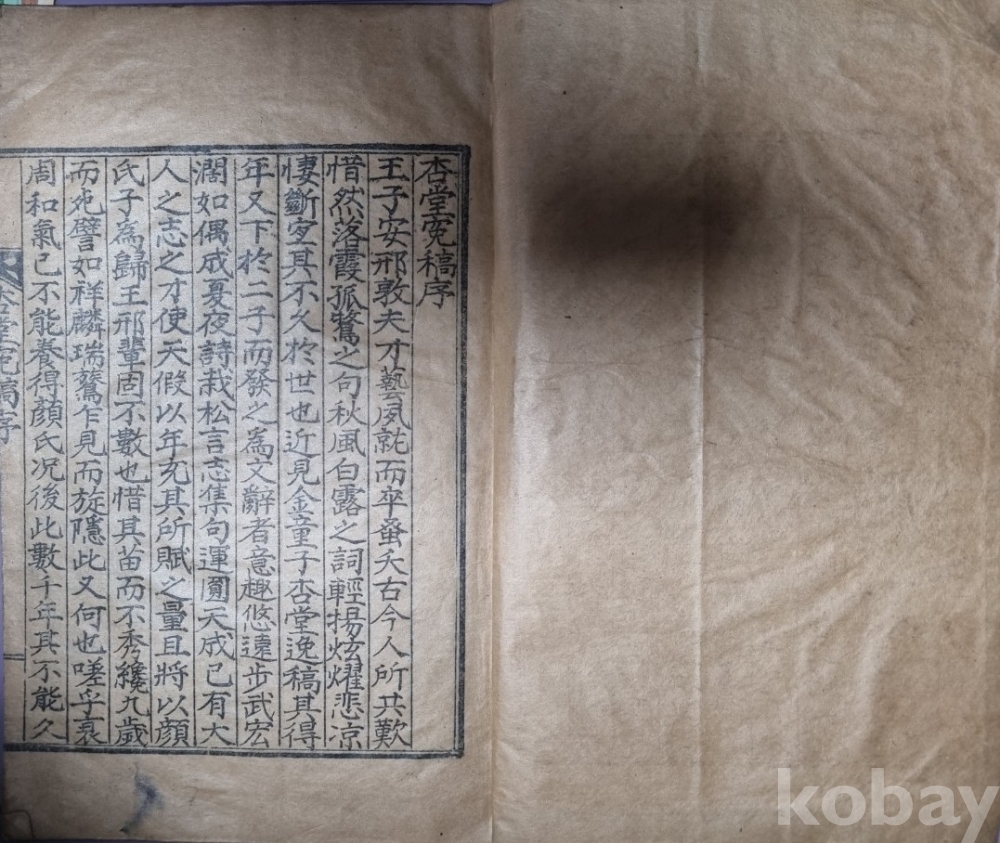 杏堂寃稿序
王子安邢敦夫才藝夙就而卒蚤夭古今人所共歎
惜然落霞孤鶩之句秋風白露之詞輕揚炫燿悲凉
悽斷宐其不久於世也近見金童子杏堂逸稿其得
年又下於二子而發之爲文辭者意趣悠遠步武宏
濶如偶成夏夜詩栽松言志集句運圓天成已有大
人之志之才使天假以年充其所賦之量且將以顔
氏子爲歸王邢輩固不數也惜其苗而不秀纔九歲
而夗譬如祥麟瑞鸑乍見而旋隱此又何也嗟乎衰
周和氣已不能養得顔氏况後此數千年其不能久
杏堂寃稿序
kobay